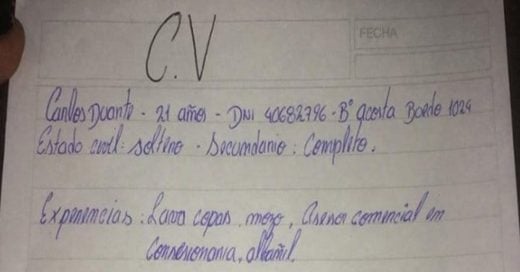 C.V
FECHA
Carlos Duarte - 21 años - DNI 40682796 - B° acosta Bordo 1024
Estado civil: soltero - Secundario: Completo.
Experiencias: Lava copas, mozo, Asesor comercial en
Consesionaria, albañil.